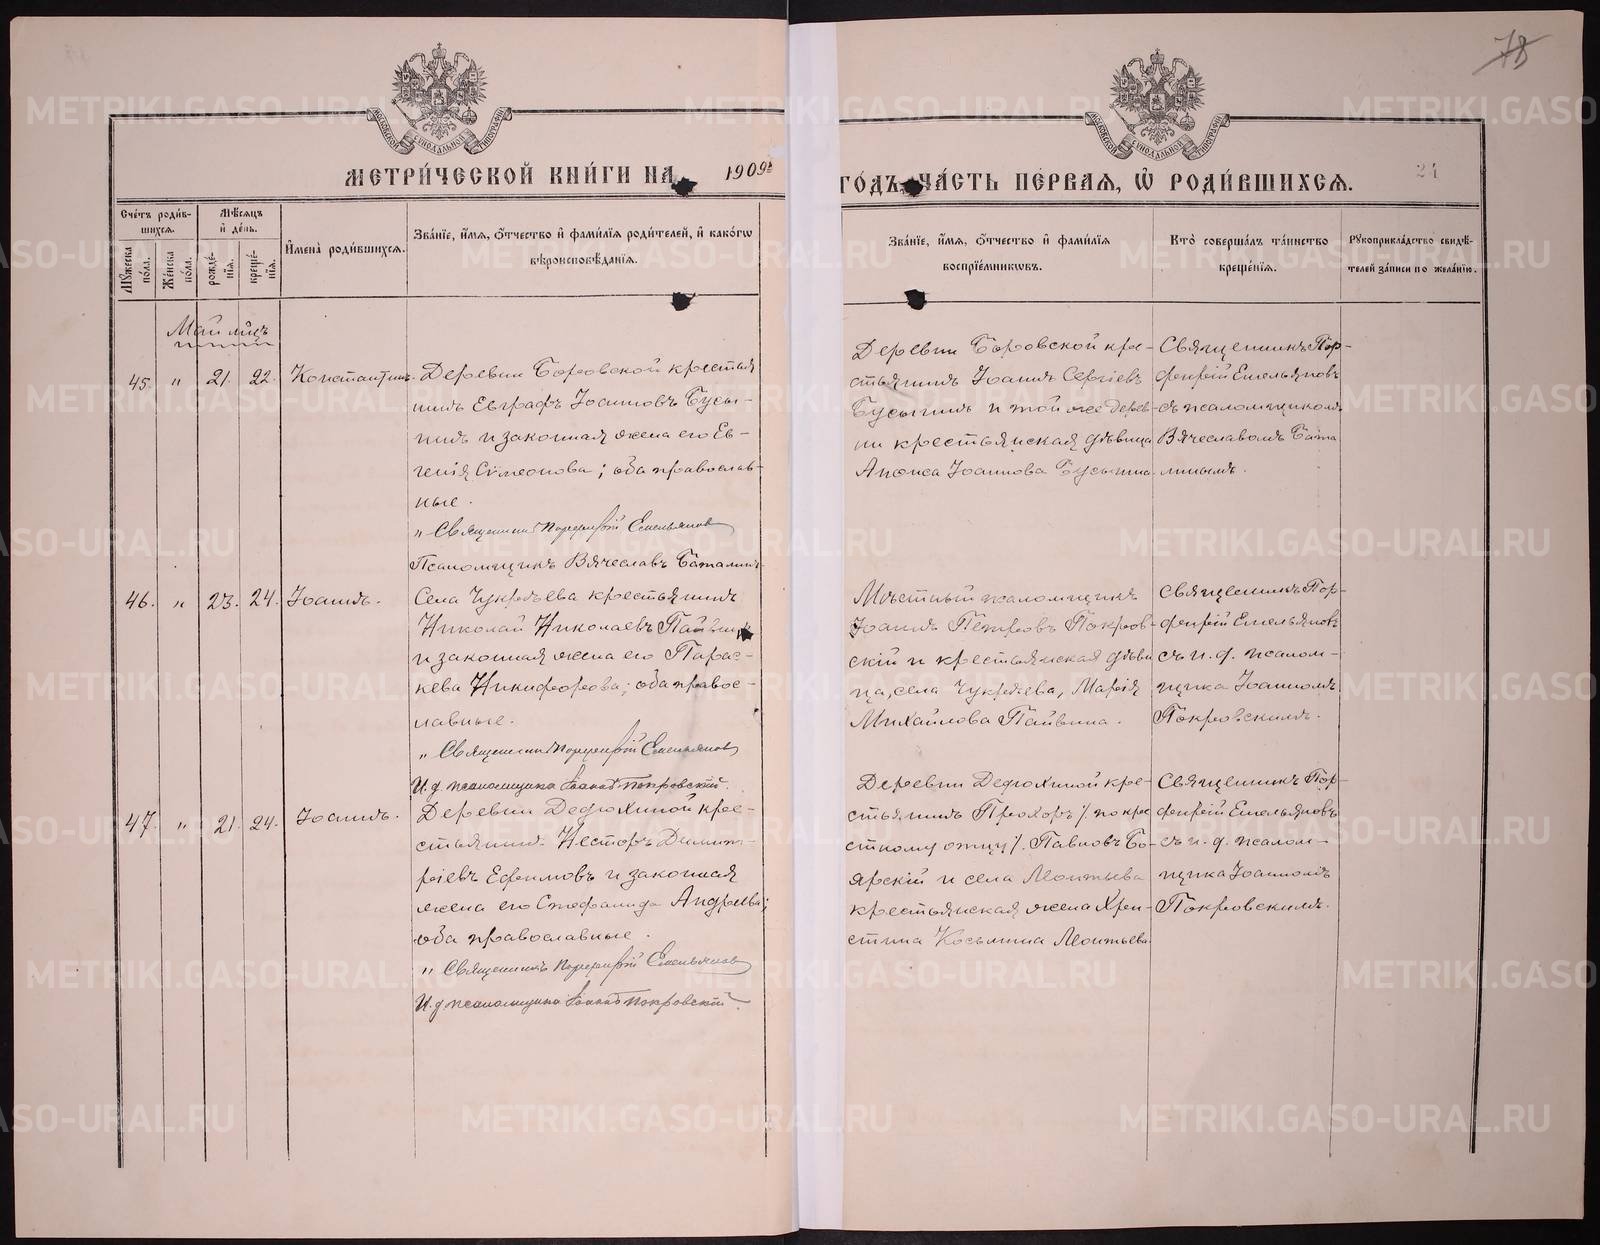 78
МЕТРИ́ЧЕСКОЙ КНИ́ГИ НА 1909
ГО́ДЪ, ЧА́СТЬ ПЕ́РВАЯ, Ѡ РОДИ́ВШИХСЯ.
24
Сче́тъ роди́вшихся.
Мѣ́сяцъ и де́нь.
Му́жеска по́ла.
Же́нска по́ла.
рожде́нїя.
креще́нїя.
И҆мена̀ роди́вшихся.
Зва́нїе, и҆́мя, о҆́тчество и҆ фами́лїя роди́телей, и҆ како́гѡ
вѣроисповѣ́данїя.
Зва́нїе, и҆́мя, о҆́тчество и҆ фами́лїя
воспрїе́мникѡвъ.
Кто̀ соверша́лъ та́инство
креще́нїя.
Рꙋкоприкла́дство свидѣ́-
телей за́писи по жела́нїю.
Май мѣцъ
45. " 21. 22. Константинъ.
Деревни Боровской крестья
нинъ Евграфъ Іоанновъ Бусы-
нинъ и законная жена его Ев-
генія Сѵмеонова; оба православ-
ные.
" Священникъ Порфирій Емельяновъ
Псаломщикъ Вячеславъ Баталинъ
Деревни Боровской кре-
стьянинъ Іоаннъ Сергіевъ
Бусынинъ и той же дерев-
ни крестьянская дѣвица
Анфиса Іоаннова Бусынина.
Священникъ Пор-
фирій Емельяновъ
съ псаломщикомъ
Вячеславомъ Бата
линымъ.
46. " 23. 24. Іоаннъ.
Села Чукреева крестьянинъ
Николай Николаевъ Пайвинъ
и законная жена его Парас-
кева Никифорова; оба правос-
лавные.
" Священникъ Порфирій Емельяновъ
И. д. псаломщика Іоаннъ Покровскій.
Мѣстный псаломщикъ
Іоаннъ Петровъ Покров-
скій и крестьянская дѣви
ца, села Чукреева, Марія
Михайлова Пайвина.
Священникъ Пор-
фирій Емельяновъ
съ и. д. псалом-
щика Іоанномъ
Покровскимъ.
47. " 21. 24. Іоаннъ.
Деревни Дедюхиной крес-
тьянинъ Несторъ Димит-
ріевъ Ефимовъ и законная
жена его Стефанида Андреева;
оба православные.
" Священникъ Порфирій Емельяновъ
И. д псаломщика Іоаннъ Покровскій
Деревни Дедюхиной кре-
стьянинъ Прохоръ /. по кре
стному отцу /. Павловъ Бо-
ярскій и села Леонтьева
крестьянская жена Хри-
стина Косьмина Леонтьева
Священникъ Пор-
фирій Емельяновъ
съ и. д. псалом-
щика Іоанномъ
Покровскимъ.
METRIKI.GASO-URAL.RU